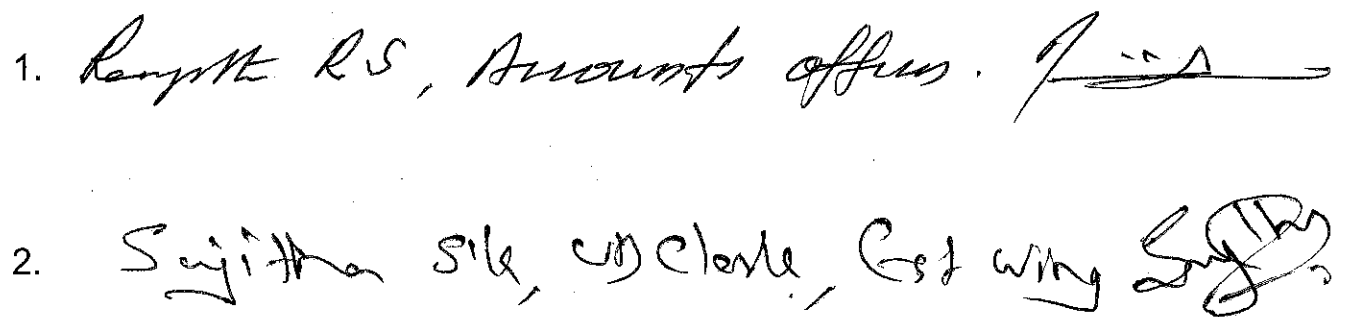 1. Renjith R S, Accounts officer.
2. Sujitha S K, UD Clerk, Est wing